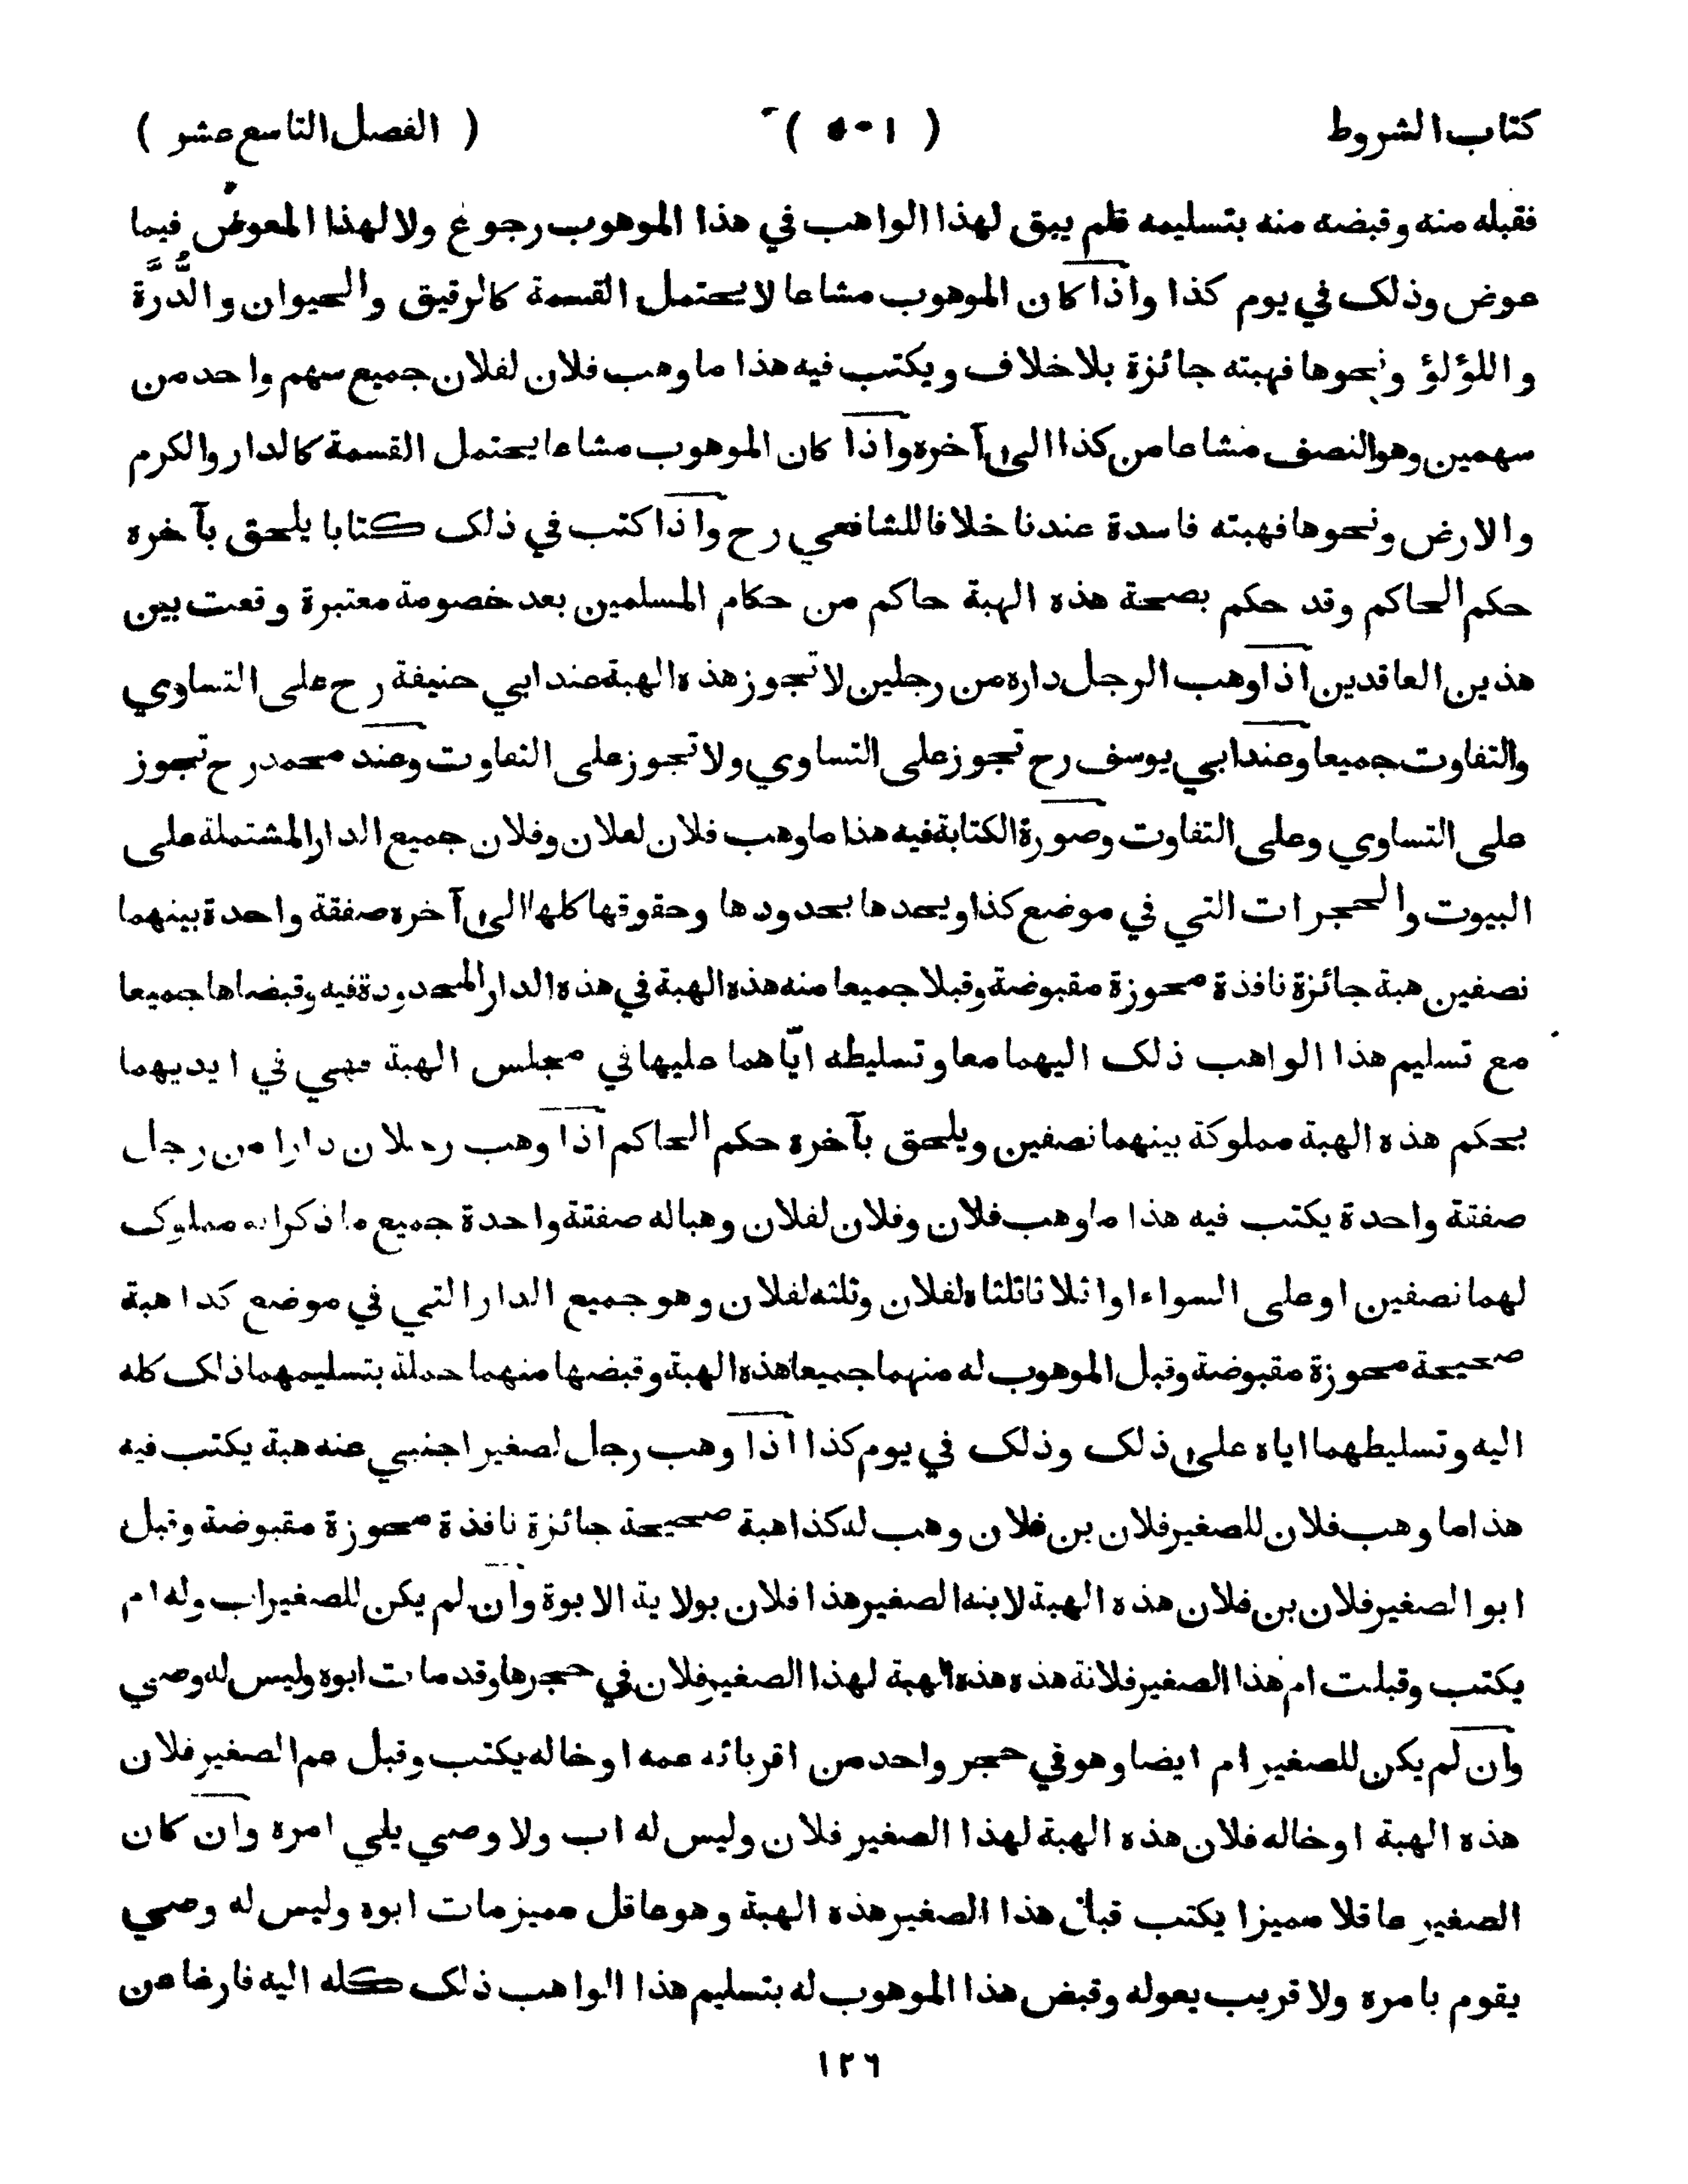 كتاب الشروط ( ٥٠١ ) ( الفصل التاسع عشر )
فقبله منه وقبضه منه بتسليمه فلم يبق لهذا الواهب في هذا الموهوب رجوع ولا لهذا المعوض فيما
عوض وذلك في يوم كذا واذا كان الموهوب مشاعا لا يحتمل القسمة كالرقيق والحيوان والدُّرَّة
واللؤلؤ ونحوها فهبته جائزة بلا خلاف ويكتب فيه هذا ما وهب فلان لفلان جميع سهم واحد من
سهمين وهو النصف مشاعا من كذا الى آخره واذا كان الموهوب مشاعا يحتمل القسمة كالدار والكرم
والارض ونحوها فهبته فاسدة عندنا خلافا للشافعي رح واذا كتب في ذلك كتابا يلحق بآخره
حكم الحاكم وقد حكم بصحة هذه الهبة حاكم من حكام المسلمين بعد خصومة معتبرة وقعت بين
هذين العاقدين اذا وهب الرجل داره من رجلين لا تجوز هذه الهبة عند ابي حنيفة رح على التساوي
والتفاوت جميعا وعند ابي يوسف رح تجوز على التساوي ولا تجوز على التفاوت وعند محمد رح تجوز
على التساوي وعلى التفاوت وصورة الكتابة فيه هذا ما وهب فلان لفلان وفلان جميع الدار المشتملة على
البيوت والحجرات التي في موضع كذا ويحدها بحدودها وحقوقها كلها الى آخره صفقة واحدة بينهما
نصفين هبة جائزة نافذة محوزة مقبوضة وقبلا جميعا منه هذه الهبة في هذه الدار المحدودة فيه وقبضاها جميعا
مع تسليم هذا الواهب ذلك اليهما معا وتسليطه ايّاهما عليها في مجلس الهبة فهي في ايديهما
بحكم هذه الهبة مملوكة بينهما نصفين ويلحق بآخره حكم الحاكم اذا وهب رجلان دارا من رجل
صفقة واحدة يكتب فيه هذا ما وهب فلان وفلان لفلان وهبا له صفقة واحدة جميع ما ذكرا انه مملوك
لهما نصفين او على السواء او اثلاثا ثلثاه لفلان وثلثه لفلان وهو جميع الدار التي في موضع كذا هبة
صحيحة محوزة مقبوضة وقبل الموهوب له منهما جميعا هذه الهبة وقبضها منهما جملة بتسليمهما ذلك كله
اليه وتسليطهما اياه على ذلك وذلك في يوم كذا اذا وهب رجل لصغير اجنبي عنه هبة يكتب فيه
هذا ما وهب فلان للصغير فلان بن فلان وهب له كذا هبة صحيحة جائزة نافذة محوزة مقبوضة وقبل
ابو الصغير فلان بن فلان هذه الهبة لابنه الصغير هذا فلان بولاية الابوة وان لم يكن للصغير اب وله ام
يكتب وقبلت ام هذا الصغير فلانة هذه هذه الهبة لهذا الصغير فلان في حجرها وقد مات ابوه وليس له وصي
وان لم يكن للصغير ام ايضا وهو في حجر واحد من اقربائه عمه او خاله يكتب وقبل عم الصغير فلان
هذه الهبة او خاله فلان هذه الهبة لهذا الصغير فلان وليس له اب ولا وصي يلي امره وان كان
الصغير عاقلا مميزا يكتب قبل هذا الصغير هذه الهبة وهو عاقل مميز مات ابوه وليس له وصي
يقوم بامره ولا قريب يعوله وقبض هذا الموهوب له بتسليم هذا الواهب ذلك كله اليه فارغا عن
١٢٦